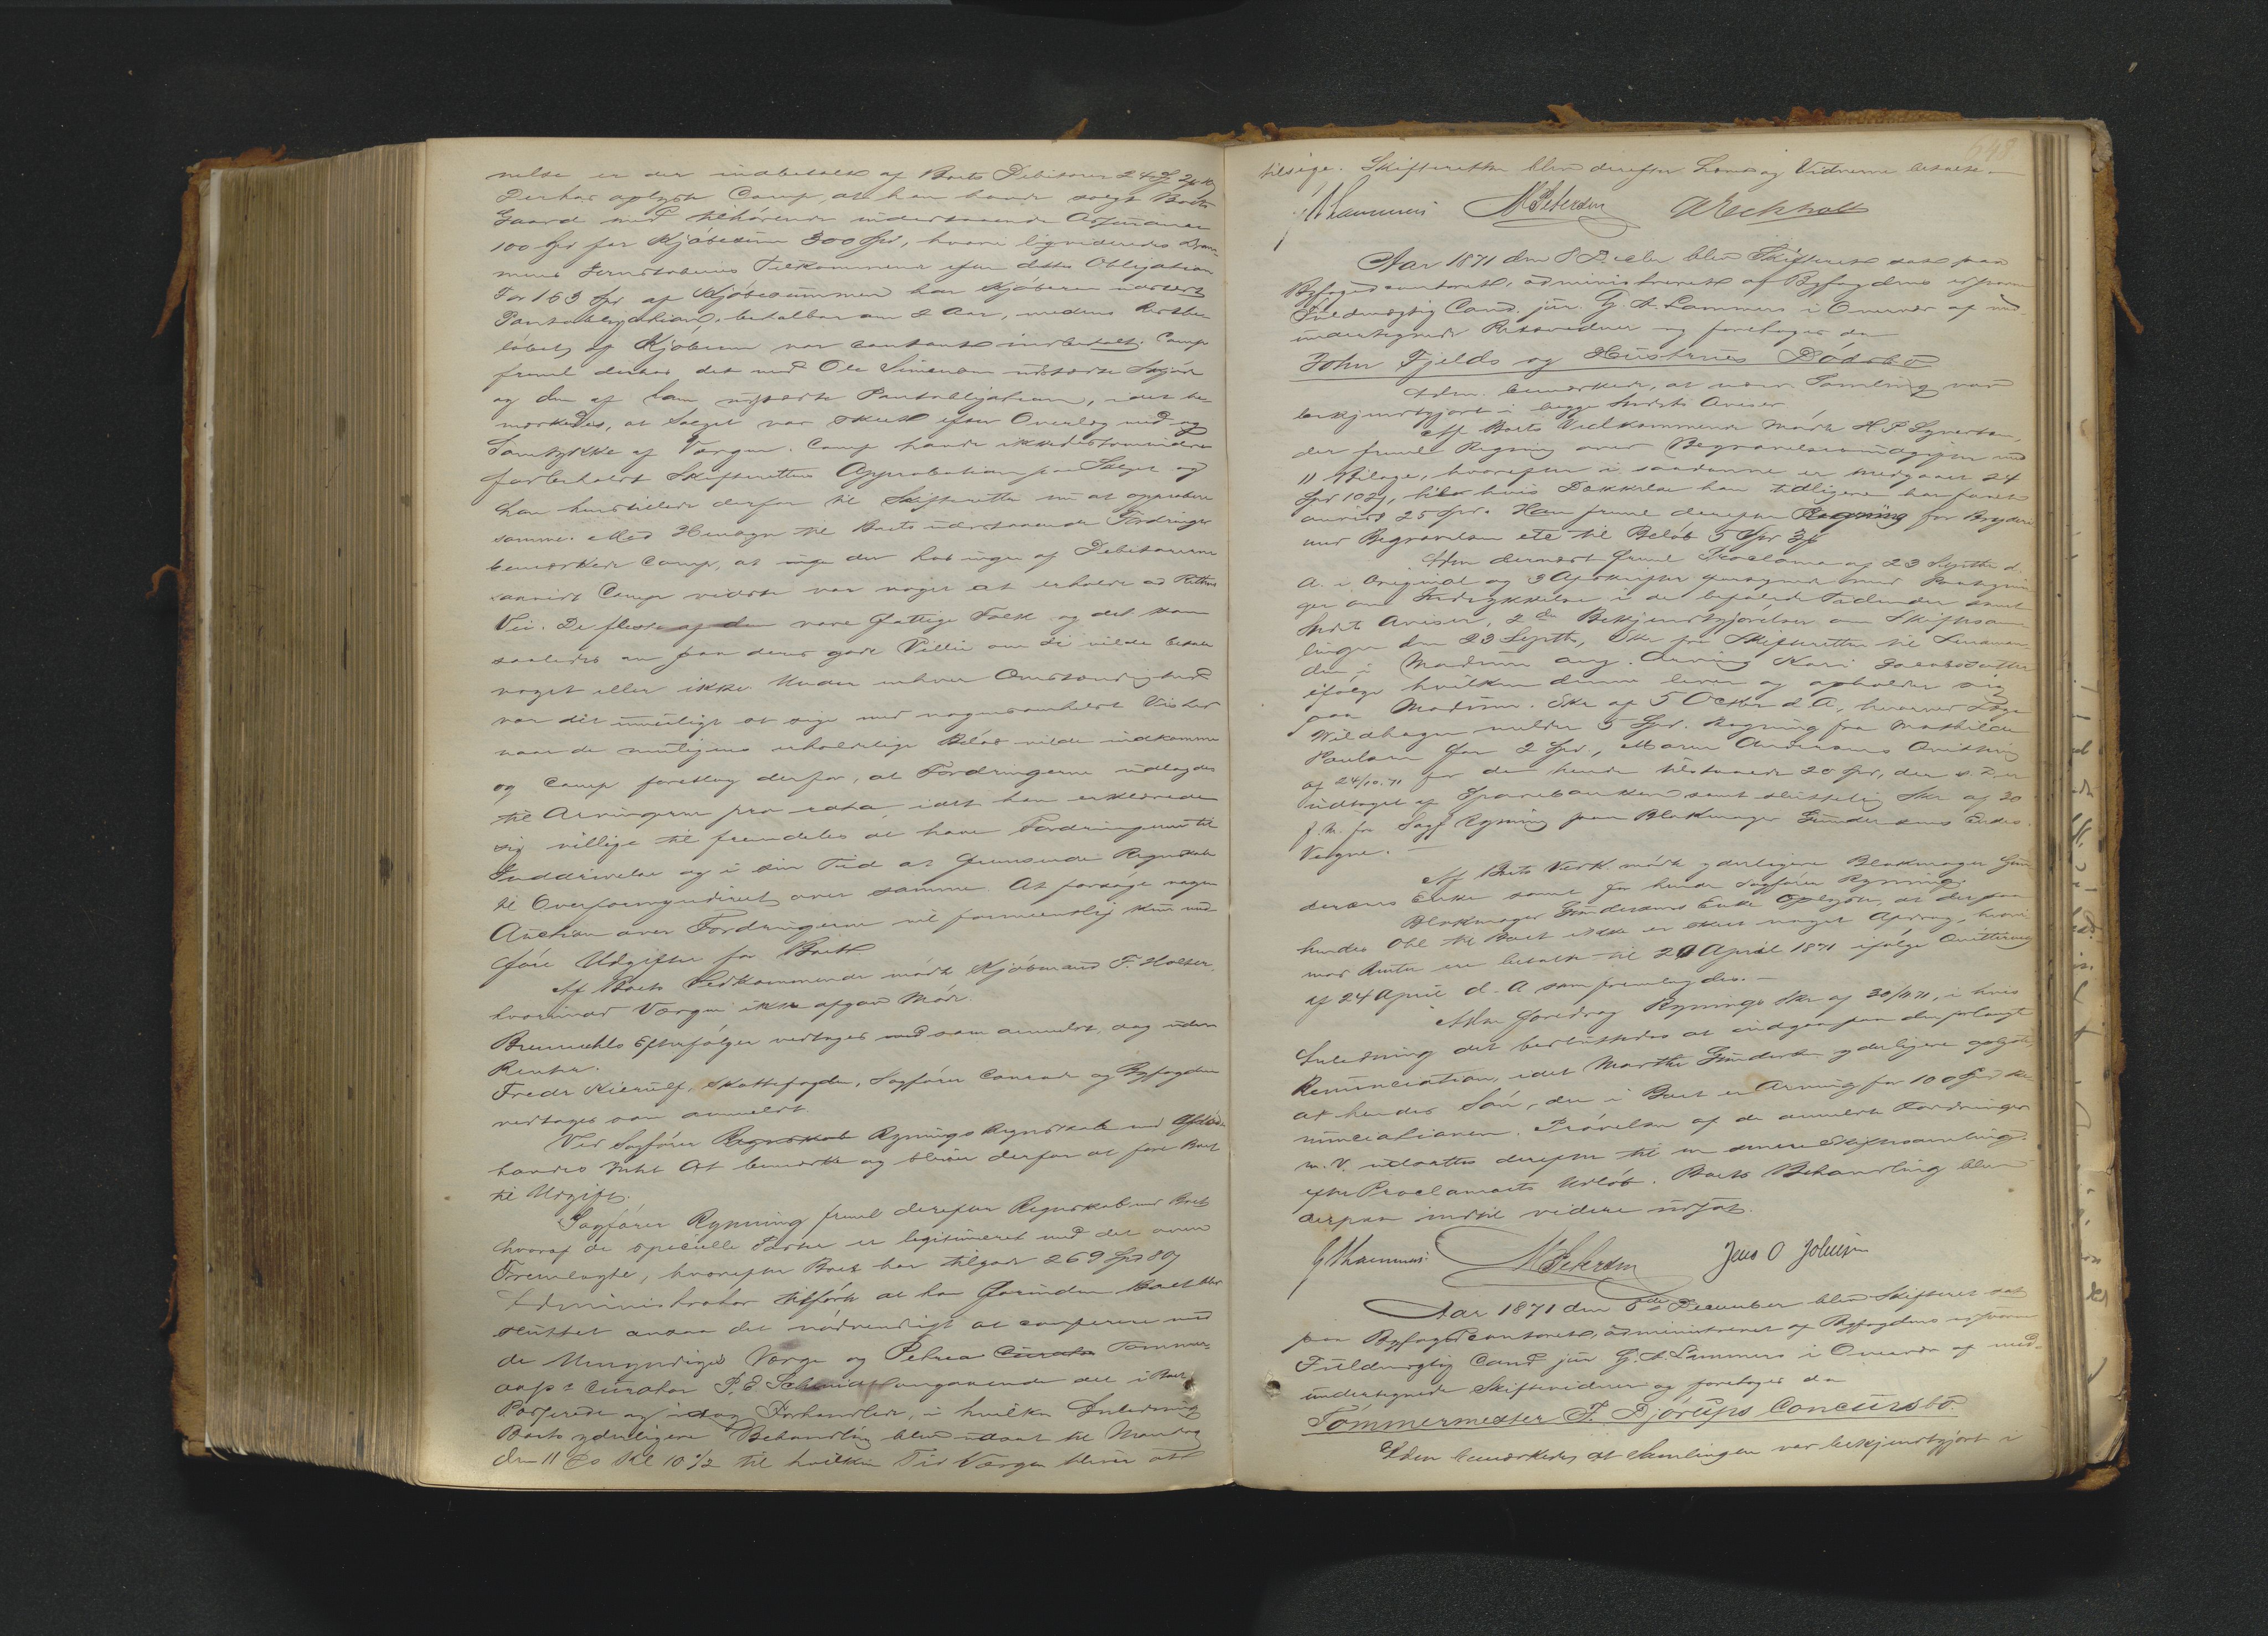 nelse er der indbetalt af Boets Debitorer 24
Derhos oplyste Comp, at han havde solgt Boets
Gaard med tilhørende
100 Spd for Kjøbesum 300 Spd, hvori ligvideredes Dram-
mens Tilkommende efter dets Obligation
For 153 Spd af Kjøbesummen har Kjøberen udstedt
Pantobligation, betalbar om 2 Aar, medens Restbe-
løbet af Kjøberen var contant indbetalt. Comp
freml derhos det med Ole Simensen udstedte Skjøde
og den af ham udstedte Pantobligation, idet be-
mærkedes, at Salget var skeet efter Overlæg med og
Samtykke af Værgen. Comp havde ikkedestomindre
forbeholdt Skifterettens Approbation paa Salget og
han henstillede derfor til Skifteretten nu at approbere
samme. Med Hensyn til Boets udestaaende Fordringer
bemærkede Comp, at inge der hos ingen af Debitorerne
saavidt Comp vidste var noget at erholde ad Rettens
Vei. De fleste af dem vare fattige Folk og det kom
saaledes an paa deres gode Villie om de vilde betale
noget eller ikke. Under enhver Omstændighed
var det umuligt at sige med nogensomhelst Vished
naar de muligens erholdelige Beløb vilde indkomme
og Comp foreslog derfor, at Fordringerne udlagdes
til Arvingerne pro rata, idet han erklærede
sig villige til fremdeles at have Fordringerne til
Inddrivelse og i sin Tid at fremsende Regnskab
til Overformynderiet over samme. At forsøge nogen
Auction over Fordringerne vil formentlig kun med-
føre Udgifter for Boet.
Af Boets Vedkommende mødte Kjøbmand F. Holter,
hvorimod Værgen ikke afgav Møde.
Efterfølger vedtages med som anmeldt, dog uden
Renter.
Fredr Kierulf, Skattefogden, Sagfører Conrad og Byfogden
vedtages som anmeldt.
Ved Sagfører Regnskab Rynings Regnskab med
havdes Intet At bemærke og bliver derfor at føre Boet
til Udgift.
Sagfører Rynning freml derefter Regnskab med Boet
hvoraf de specielle Poster er legitimeret med det oven
Fremlagte, hvorefter Boet har tilgode 269 Spd 80
Administrator tilførte at han forinden Boet blev
sluttet ansaa det nødvendigt at conferere med
de Umyndiges Værge og Petrea Curator Tommer-
aas's Curator P. E. Schmidt angaaende det i Boet
Passerede og idag Forhandlede, i hvilken Anledning
Boets yderligere Behandling blev udsat til Mandag
den 11 ds Kl 10 1/2 til hvilken Tid Værgen bliver at
548
tilsige. Skifteretten blev derefter hævet og Vidnerne betalte.
G Lammers M Petersen A Eckholt
Aar 1871 den 8 Decbr blev Skifteret sat paa
Byfogedcontoret, administreret af Byfogdens
Fuldmægtig Cand. jur. G. A. Lammers i Overvær af med-
undertegnede Retsvidner og foretoges da
John Fjelds og Hustrues Dødsbo
Adm. bemærkede, at den Samling var
bekjendtgjort i begge Stedets Aviser
Af Boets Vedkommende mødte H P Syvertsen,
der freml Regning over Begravelsesudgifter med
11 Bilage, hvorefter i saadanne er medgaaet 24
Spd 102, til hvis Dækkelse han tidligere har faaet
anvist 25 Spd. Han freml derefter Regning for Bryderi
med Begravelsen etc til Beløb 5 Spd
Adm dernæst freml Proclama af 23 Septbr d.
A. i Original og 3 Afskrifter forsynede med Paategnin-
ger om Indrykkelse i de befalede Tidender samt
Stedets Aviser, 2de Bekjendtgjørelser om Skiftesam-
linger den 23 Septb, Skr fra Skifteretten til Lensman-
den i Modum ang. Arving Kari Jacobsdatter
ifølge hvilken denne lever og opholder sig
paa Modum. Skr af 5 Octbr d. A., hvorved Læge
Wildhagen melder 5 Spd. Regning fra Mathilde
Paulsen for 2 Spd., Maren Andersens Qvittering
af 24/10.71 for de hende tilstaaede 20 Spd, der s. D. er
udtaget af Sparebanken samt sluttelig Skr af 30
f. M. fra Sagf Ryning paa Blokmager Gundersens Enkes
Vegne.
Af Boets Vedk mødte yderligere Blokmager Gun-
dersens Enke samt for hende Sagfører Rynning.
Blokmager Gundersens Enke oplyste, at der paa
hendes Obl til Boet ikke er skeet noget Afdrag, hvori-
mod Renter ere betalte til 20 April 1871 ifølge Qvittering
af 24 April d. A som fremlagdes.
Adm foredrog Rynings Skr af 30/11 71, i hvis
Anledning det besluttedes at indgaa paa den forlangte
Renunciation, idet Marthe Gundersen yderligere oplyste,
at hendes Søn, der i Boet er Arving for 100 Spd
nunciationen. Prøvelsen af de anmeldte Fordringer
m. V. udsattes derefter til en senere Skiftesamling
efter Proclamaets Udløb. Boets Behandling blev
derpaa indtil videre udsat.
G Lammers M Petersen Jens O Johnsen
Aar 1871 den 8de December blev Skifteret sat
paa Byfogedcontoret, administreret af Byfogdens
Fuldmægtig Cand jur G. A. Lammers i Overvær af med-
undertegnede Skiftevidner og foretoges da
Tømmermester T. Bjørups Concursbo.
Adm bemærkede, at Samlingen var bekjendtgjort i